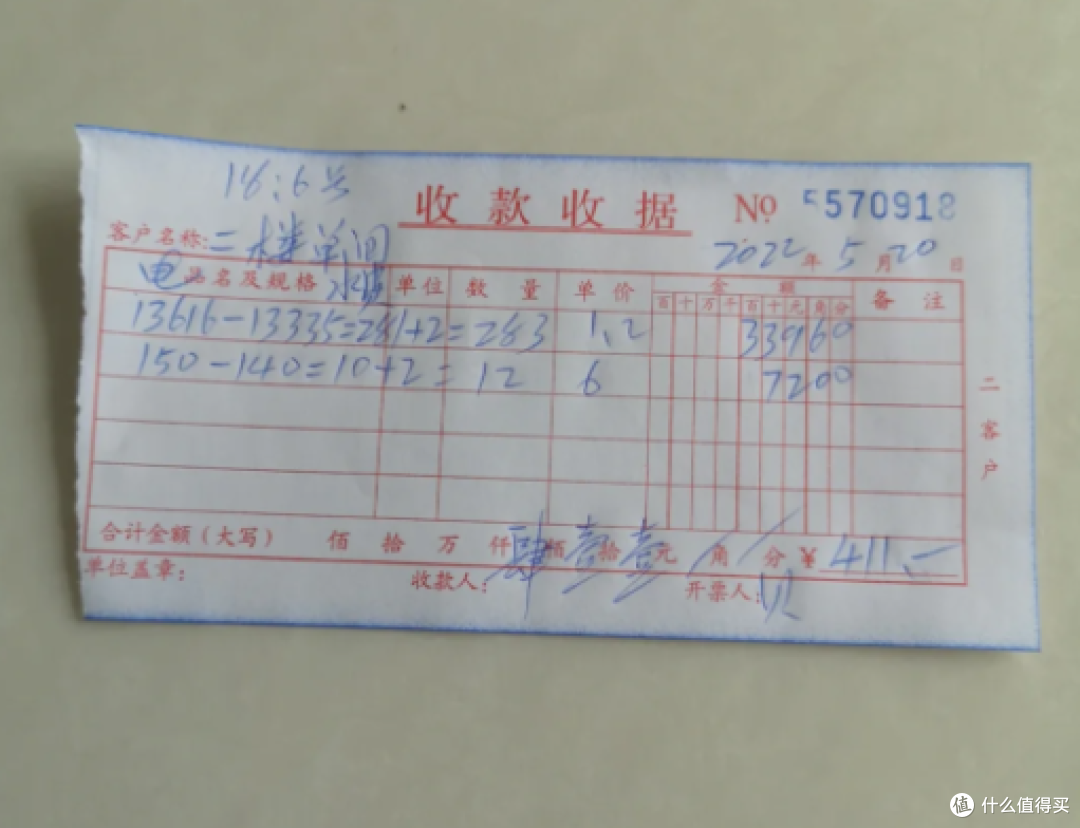 18:6号
收款收据 № 5570918
客户名称:二楼单间 2022年5月20日
电 品名及规格 水 单位 数量 单价 金额 备注
百十万千百十元角分
13616-13335=281+2=283 1.2 33960
150-140=10+2=12 6 7200
二客户
合计金额(大写) 佰 拾 万 仟肆佰壹拾壹元/角/分 ¥411.-
单位盖章: 收款人: 开票人:
值 什么值得买